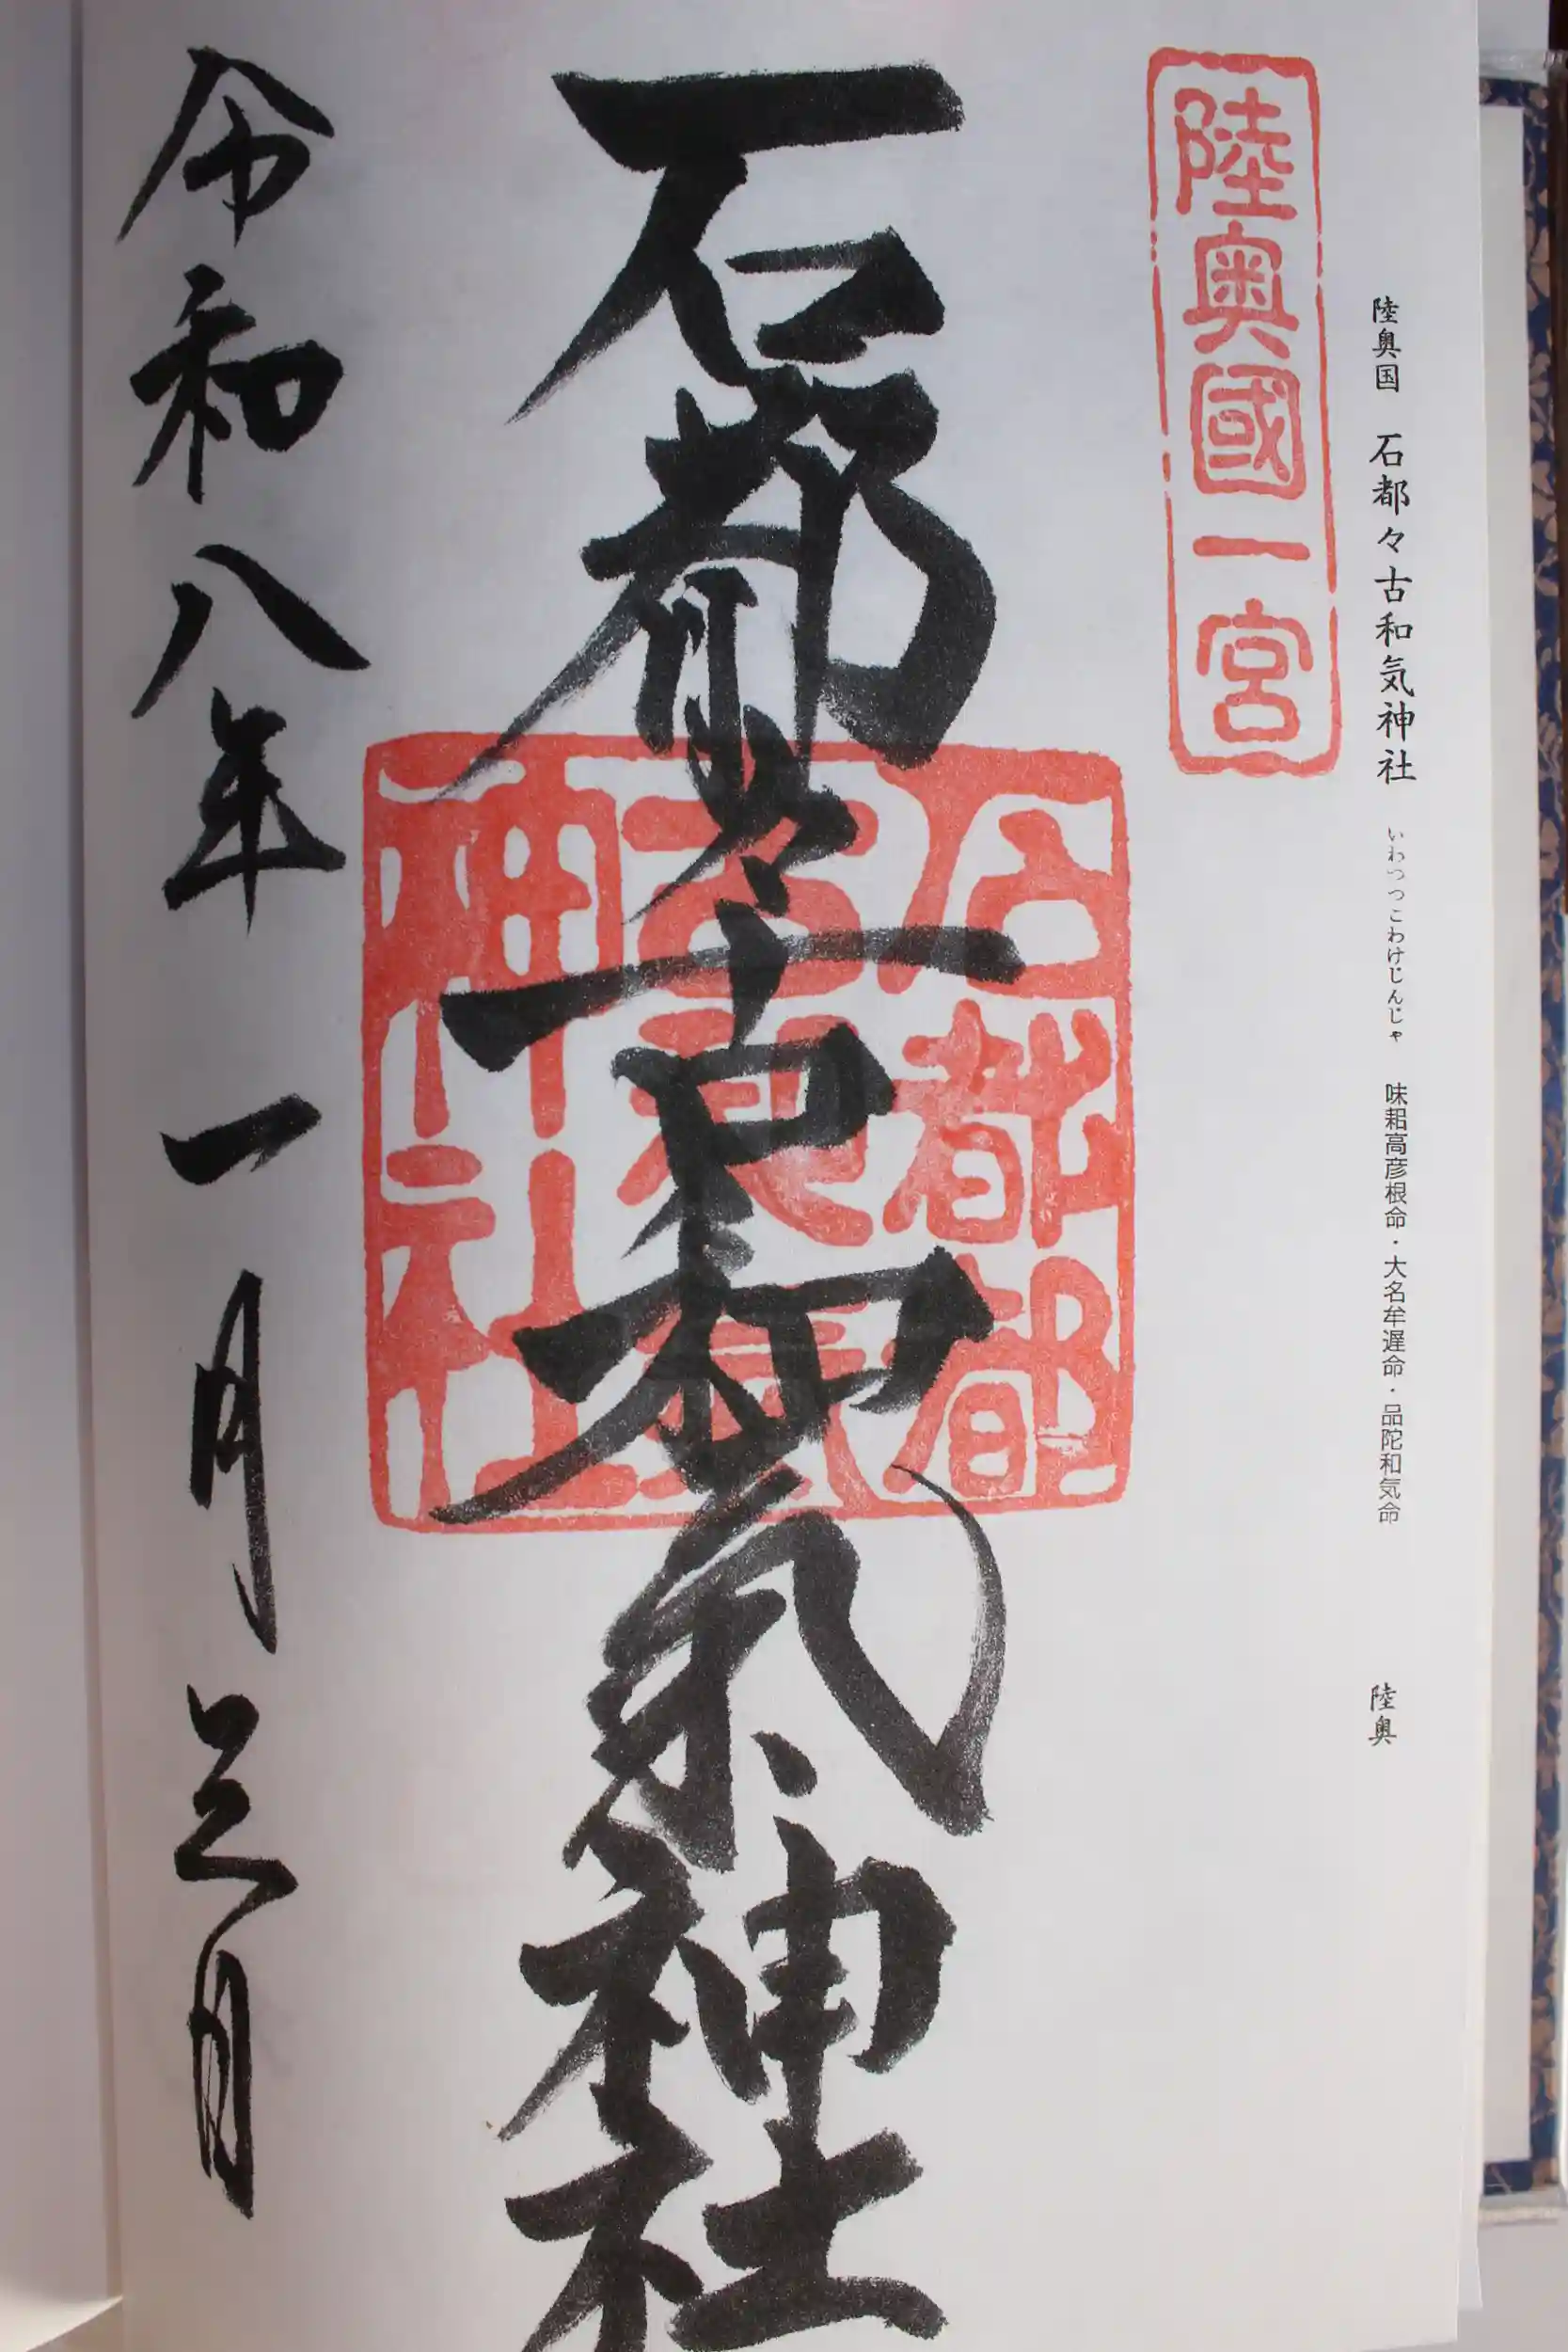 陸奥国 石都々古和気神社 いわつつこわけじんじゃ 味耜高彦根命・大名牟遅命・品陀和気命 陸奥
陸奥國一宮
石都々古和氣神社
石都都
古和氣
神社
令和八年一月三日